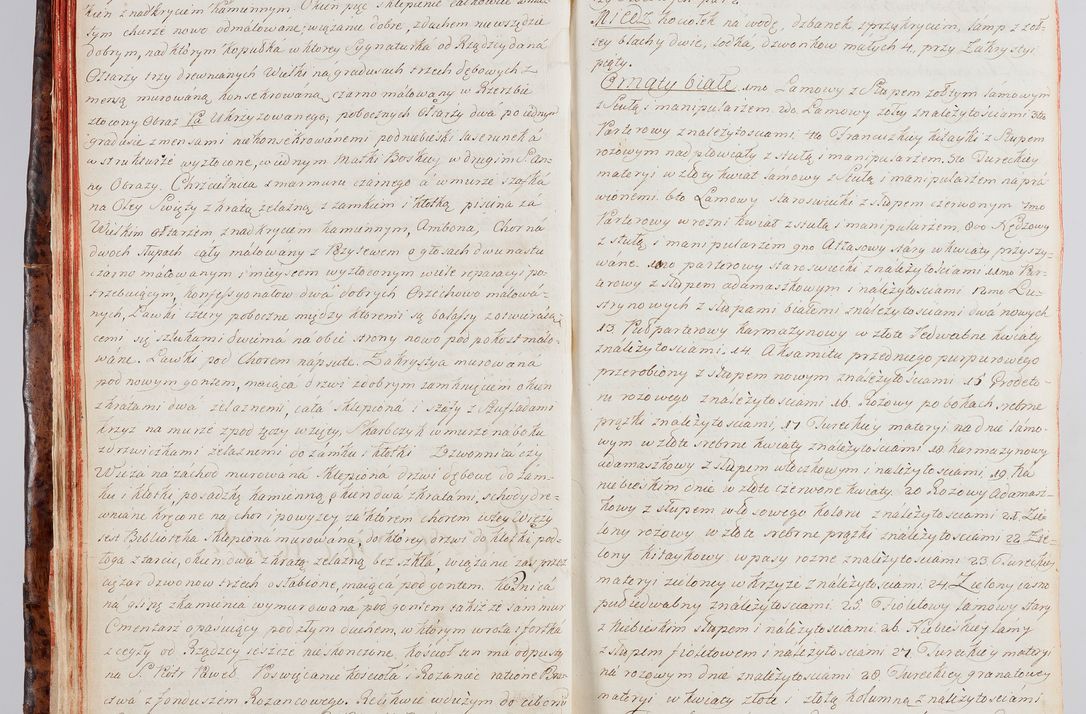 kien z nadkryciem kamiennym. Okien pięć sklepienie
tym churze nowo odmalowane, wiązanie dobre, z dachem niewszędzie
dobrym, nad którym kopułka w ktorey Sygnaturka od Rządzcy dana
Ołtarzy trzy drewnianych Wielki na gradusach trzech dębowych z
mensą murowaną konsekrowaną czarno malowany w Rzeźbie
złocony Obraz Pa Ukrzyzowanego, pobocznych Ołtarzy dwa po iednym
gradusie z mensami niekonsekrowanemi pod niebieski laserunek a
w strukturze wyzłocone, w iednym Matki Boskiey w drugim S. An-
ny Obrazy. Chrzcielnica z marmuru czarnego a w murze szafka
na Oley Swięty z kratą zelazną z zamkiem i kłotką piscina za
Wielkim ołtarzem z nadkryciem kamiennym, Ambona, Chor na
dwoch słupach cały malowany z Pozytywem o głosach dwunastu
czarno malowanym i mieyscem wyzłoconym wiele reparacyi po-
trzebuiącym, konfessyonałow dwa dobrych Orzechowo malowa-
nych, Ławki cztery poboczne między ktoremi są balasy z otwieraią-
cemi się sztukami dwiema na obie strony nowo pod pokost malo-
wane. Ławki pod Chorem napsute. Zakrystya murowana
pod nowym gontem, maiąca drzwi z dobrym zamknięciem okien
z kratami dwa zelaznemi, cała sklepiona i szafy z szufladami
krzyz na murze z pod tęczy wzięty, Skarbczyk w murze na boku
z drzwiczkami zelaznemi do zamku i kłotki Dzwonnica czy
Wieza na zachod murowana sklepiona drzwi dębowe do zam-
ku i kłotki, posadzka kamienna okien dwa z kratami, schody dre-
wniane kręcone na chor i powyzey za którem chorem w tey Wiezy
iest Biblioteka sklepiona murowana, do którey drzwi do kłotki pod-
łoga z tarcic, okien dwa z kratą zelazną bez szkła, wiązanie zas przez
cięzar dzwonow trzech osłabione, maiąca pod gontem. Kośnica
na glinę z kamienia wymurowana pod gontem takiż ze sam mur
Cmentarz opasuiący pod złym dachem, w którym wrota i fortka
z cegły od Rządzcy ieszcze nieskonczone, kościoł ten ma odpusty
na S. Piotr Paweł Poswięcanie kościoła i Rozaniec ratione Bra-
ctwa z funduszem Rozancowego. Relikwie w duzym do ciborii
Miedz kociołek na wodę, dzbanek z przykryciem, lamp z żoł-
tey blachy dwie, łodka, dzwonkow małych 4, przy Zakrystyi
piąty.
Ornaty białe 1mo Lamowy z Słupem żołtym lamowym
z Stułą i manipularzem. 2do Lamowy żołty z nalezytosciami 3tio
Parterowy z nalezytosciami, 4to Francuzkiey kitayki z słupem
rozowym nad płowiały z stułą i manipularzem. 5to Tureckiey
materyi w złoty kwiat lamowy z Stułą i manipularzem napra-
wionemi. 6to Lamowy staroswiecki z słupem czerwonym 7mo
Parterowy w rożni kwiat z stułą i manipularzem. 8vo
z stułą i manipularzem 9no Atłasowy stary w kwiaty przyszy-
wane. 10mo parterowy staroswiecki z nalezytosciami 11mo Par-
terowy z słupem adamaszkowym i nalezytosciami 12mo Lu-
strynowych z słupami białemi z nalezytosciami dwa nowych
13. Pułparterowy karmazynowy w złote Jedwabne kwiaty
z nalezytosciami. 14. Aksamitu przedniego purpurowego
przerobiony z słupem nowym z nalezytosciami 15 Grodeto-
ru rozowego z nalezytosciami 16. Rozowy po bokach srebrne
prążki z nalezytosciami. 17 Tureckiey materyi na dnie lamo-
wym w złote srebrne kwiaty z nalezytosciami 18 Karmazynowy
adamaszkowy z słupem włoczkowym i nalezytosciami. 19. Na
niebieskim dnie w złote czerwone kwiaty. 20 Rozowy Adamasz-
kowy z słupem włosowego koloru z nalezytosciami 21. Zie-
lony rozowy w złote srebrne prążki z nalezytosciami 22. Zie-
lony kitaykowy w pasy rozne z nalezytosciami 23. Tureckiey
materyi zieloney w krzyze z nalezytosciami. 24. Zielony iasno
puł iedwabny z nalezytosciami. 25. Fioletowy lamowy stary
z niebieskim słupem i nalezytosciami 26. Niebieskiey lamy
z słupem fioletowem i nalezytosciami 27. Tureckiey materyi
na rozowym dnie z nalezytosciami 28. Tureckiey granatowey
materyi w kwiaty złote i złotą kolumną z nalezytosciami